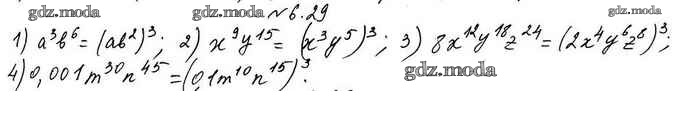 gdz.moza gdz.moza №6.29 gdz.moza
1) a³b⁶ = (ab²)³; 2) x⁹y¹⁵ = (x³y⁵)³; 3) 8x¹²y¹⁸z²⁴ = (2x⁴y⁶z⁸)³;
4) 0,001m³⁰n⁴⁵ = (0,1m¹⁰n¹⁵)³. gdz.moza